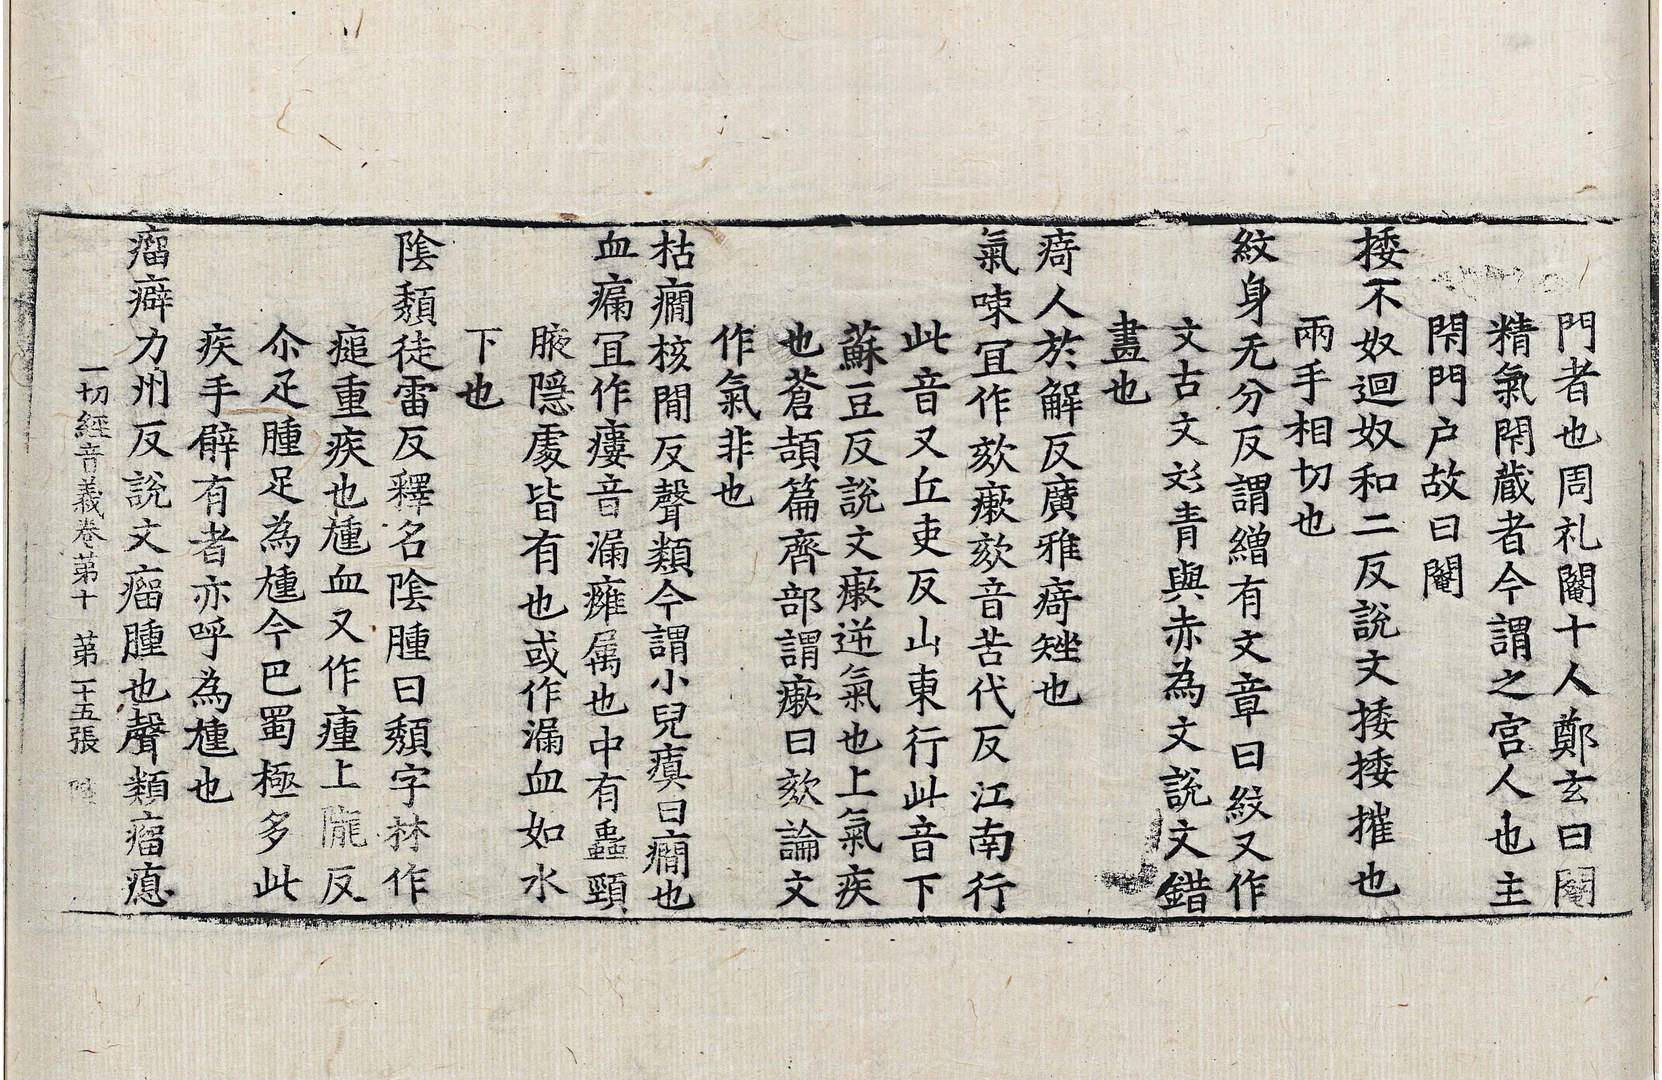 門者也周礼閽十人鄭玄曰閹
精氣閇藏者今謂之宫人也主
閇門户故曰閹
捼不奴迴奴和二反說文捼捼摧也
兩手相切也
紋身无分反謂繒有文章曰紋又作
文古文彣青與赤為文說文錯
畫也
㾨人於解反廣雅㾨矬也
氣㖒冝作欬瘶欬音苦代反江南行
此音又丘吏反山東行此音下
蘇豆反說文瘶逆氣也上氣疾
也蒼頡篇齊部謂瘶曰欬論文
作氣非也
枯癇核閒反聲類今謂小兒瘨曰癇也
血㾔冝作瘻音漏癰属也中有蟲頸
腋隱處皆有也或作漏血如水
下也
陰頹徒雷反釋名陰腫曰頹字林作
㾽重疾也尰血又作瘇上龍反
尒疋腫足為尰今巴蜀極多此
疾手臂有者亦呼為尰也
瘤癖力州反說文瘤腫也聲類瘤瘜
一切經音義卷苐十 苐二十五張